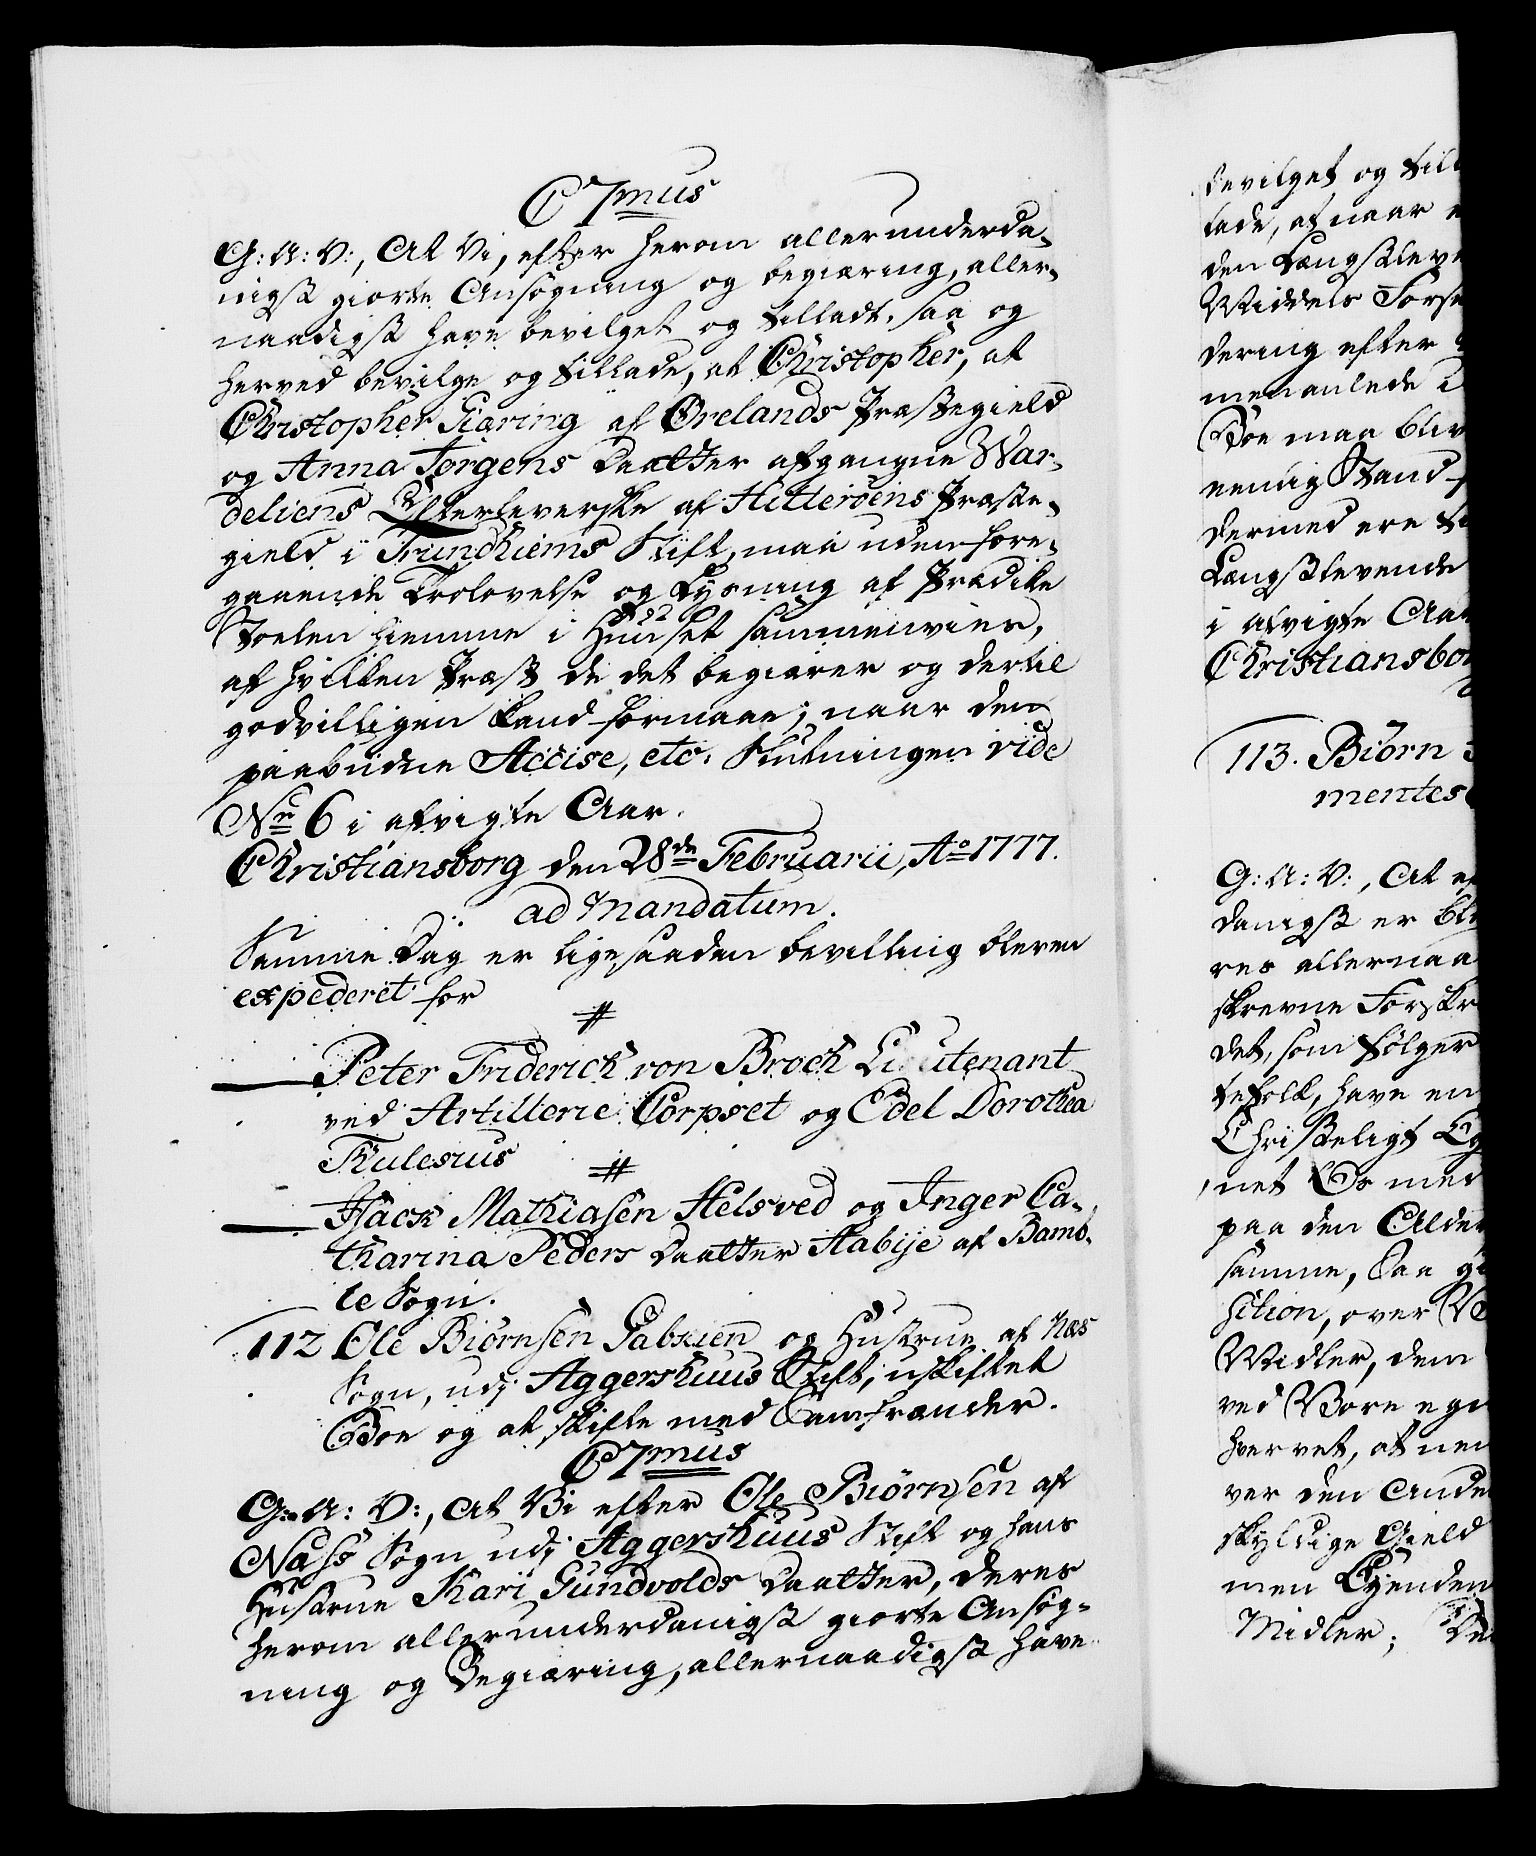 C7mus
G: A: V:, At Vi, efter herom allerunderda-
nigst giorte Ansøgning og begiæring, aller-
naadigst have bevilget og tilladt, saa og
herved bevilge og tillade, at Christopher, at
Christopher Giæring af Ørelands Præstegield
og Anna Jørgens Daatter afgangne War-
deliens Efterleverske af Hitterøens Præste-
gield i Trundhiems Stift, maa uden fore-
gaaende Trolovelse og Lysning af Prædike
Stolen hiemme i Huuset sammenvies,
af hvilken Præst de det begiærer og dertil
godvilligen kand formaae; naar den
paabudne Accise, etc. Slutningen vide
No 6 i afvigte Aar.
Christiansborg den 28de Februarii, Ao 1777.
ad Mandatum.
Samme Dag er ligesaadan bevilling bleven
expederet for
#
Peter Friderich von Broch Lieutenant
ved Artillerie Corpset og Edel Dorothea
Thulesius
#
Isack Mathiasen Helsved og Inger Ca-
tharina Peders Daatter Stabije af Bamb-
le Sogn.
112 Ole Biørnsen Gabsien og Hustrue af Næs
Sogn, udi Aggershuus Stift, uskiftet
Boe og at skifte med Samfrænder.
C7mus
G: A: V:, At Vi efter Ole Biørnsen af
Næss Sogn udi Aggershuus Stift og hans
Hustrue Kari Gundvolds Daatter, deres
herom allerunderdanigst giorte Ansøg-
ning og Begiæring, allernaadigst have
bevilget og till
lade, at naar
den Længstleve
Middels Forse
dering efter
menanlede
Boe maa bliv
eendig Stand
dermed ere
Længstlevende
i afvigte Aar
Christiansbor
113. Biørn
mentes
G: A: V:, At ef
danigst er ble
res allernaa
skrevne Forskr
det, som følger
tefolk, have en
Christeligt Eg
net Os med
paa den Alder
samme, Saa g
sition, over
Midler, dem
ved Vore egn
hvervet, at naar
ver den Anden
skyldige Gield
men Eyendem
Midler; De